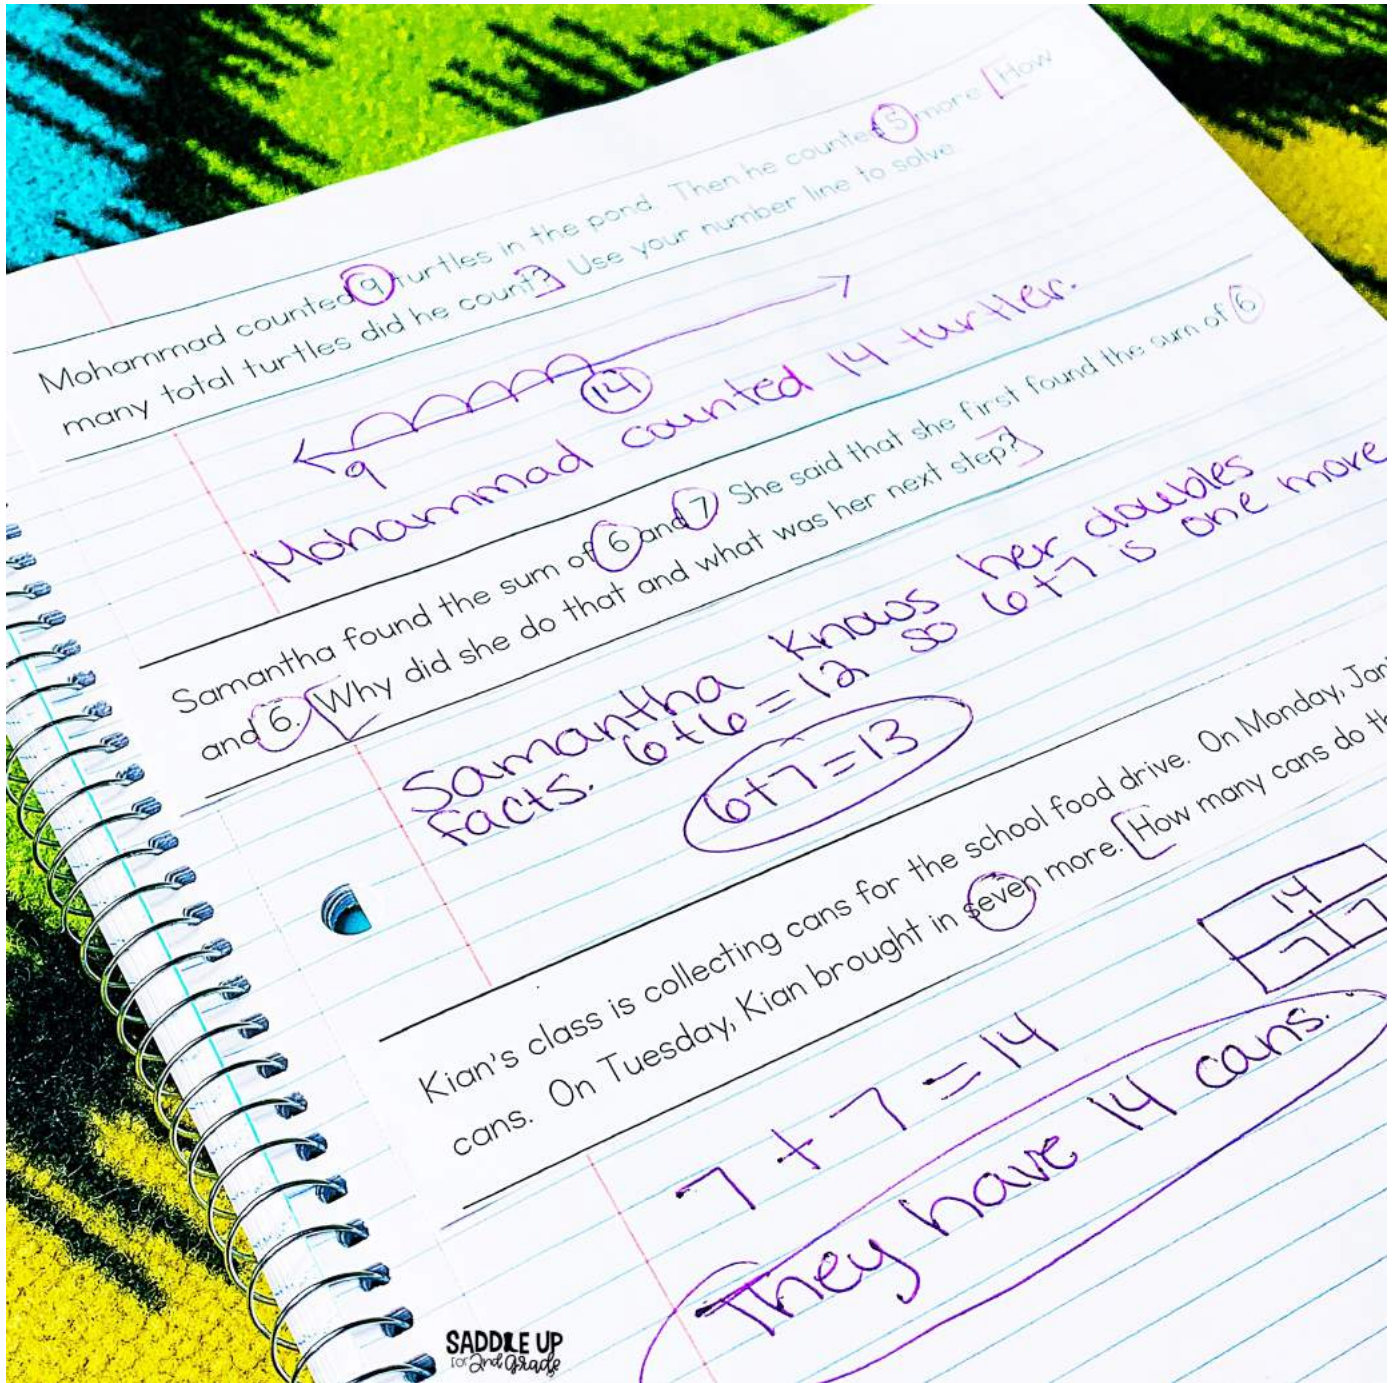 Mohammad counted 9 turtles in the pond. Then he counted 5 more. [How
many total turtles did he count?] Use your number line to solve.
9 14
Mohammad counted 14 turtles.
Samantha found the sum of 6 and 7. She said that she first found the sum of 6
and 6. [Why did she do that and what was her next step?]
Samantha knows her doubles
facts. 6+6=12 so 6+7 is one more
6+7=13
Kian's class is collecting cans for the school food drive. On Monday,
cans. On Tuesday, Kian brought in seven more. [How many cans do
14
7 7
7 + 7 = 14
They have 14 cans.
SADDLE UP
for 2nd Grade